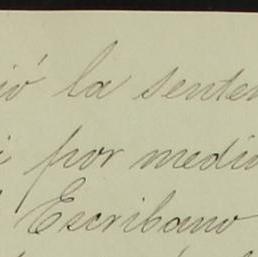 ió la senten
i por medio
Escribano